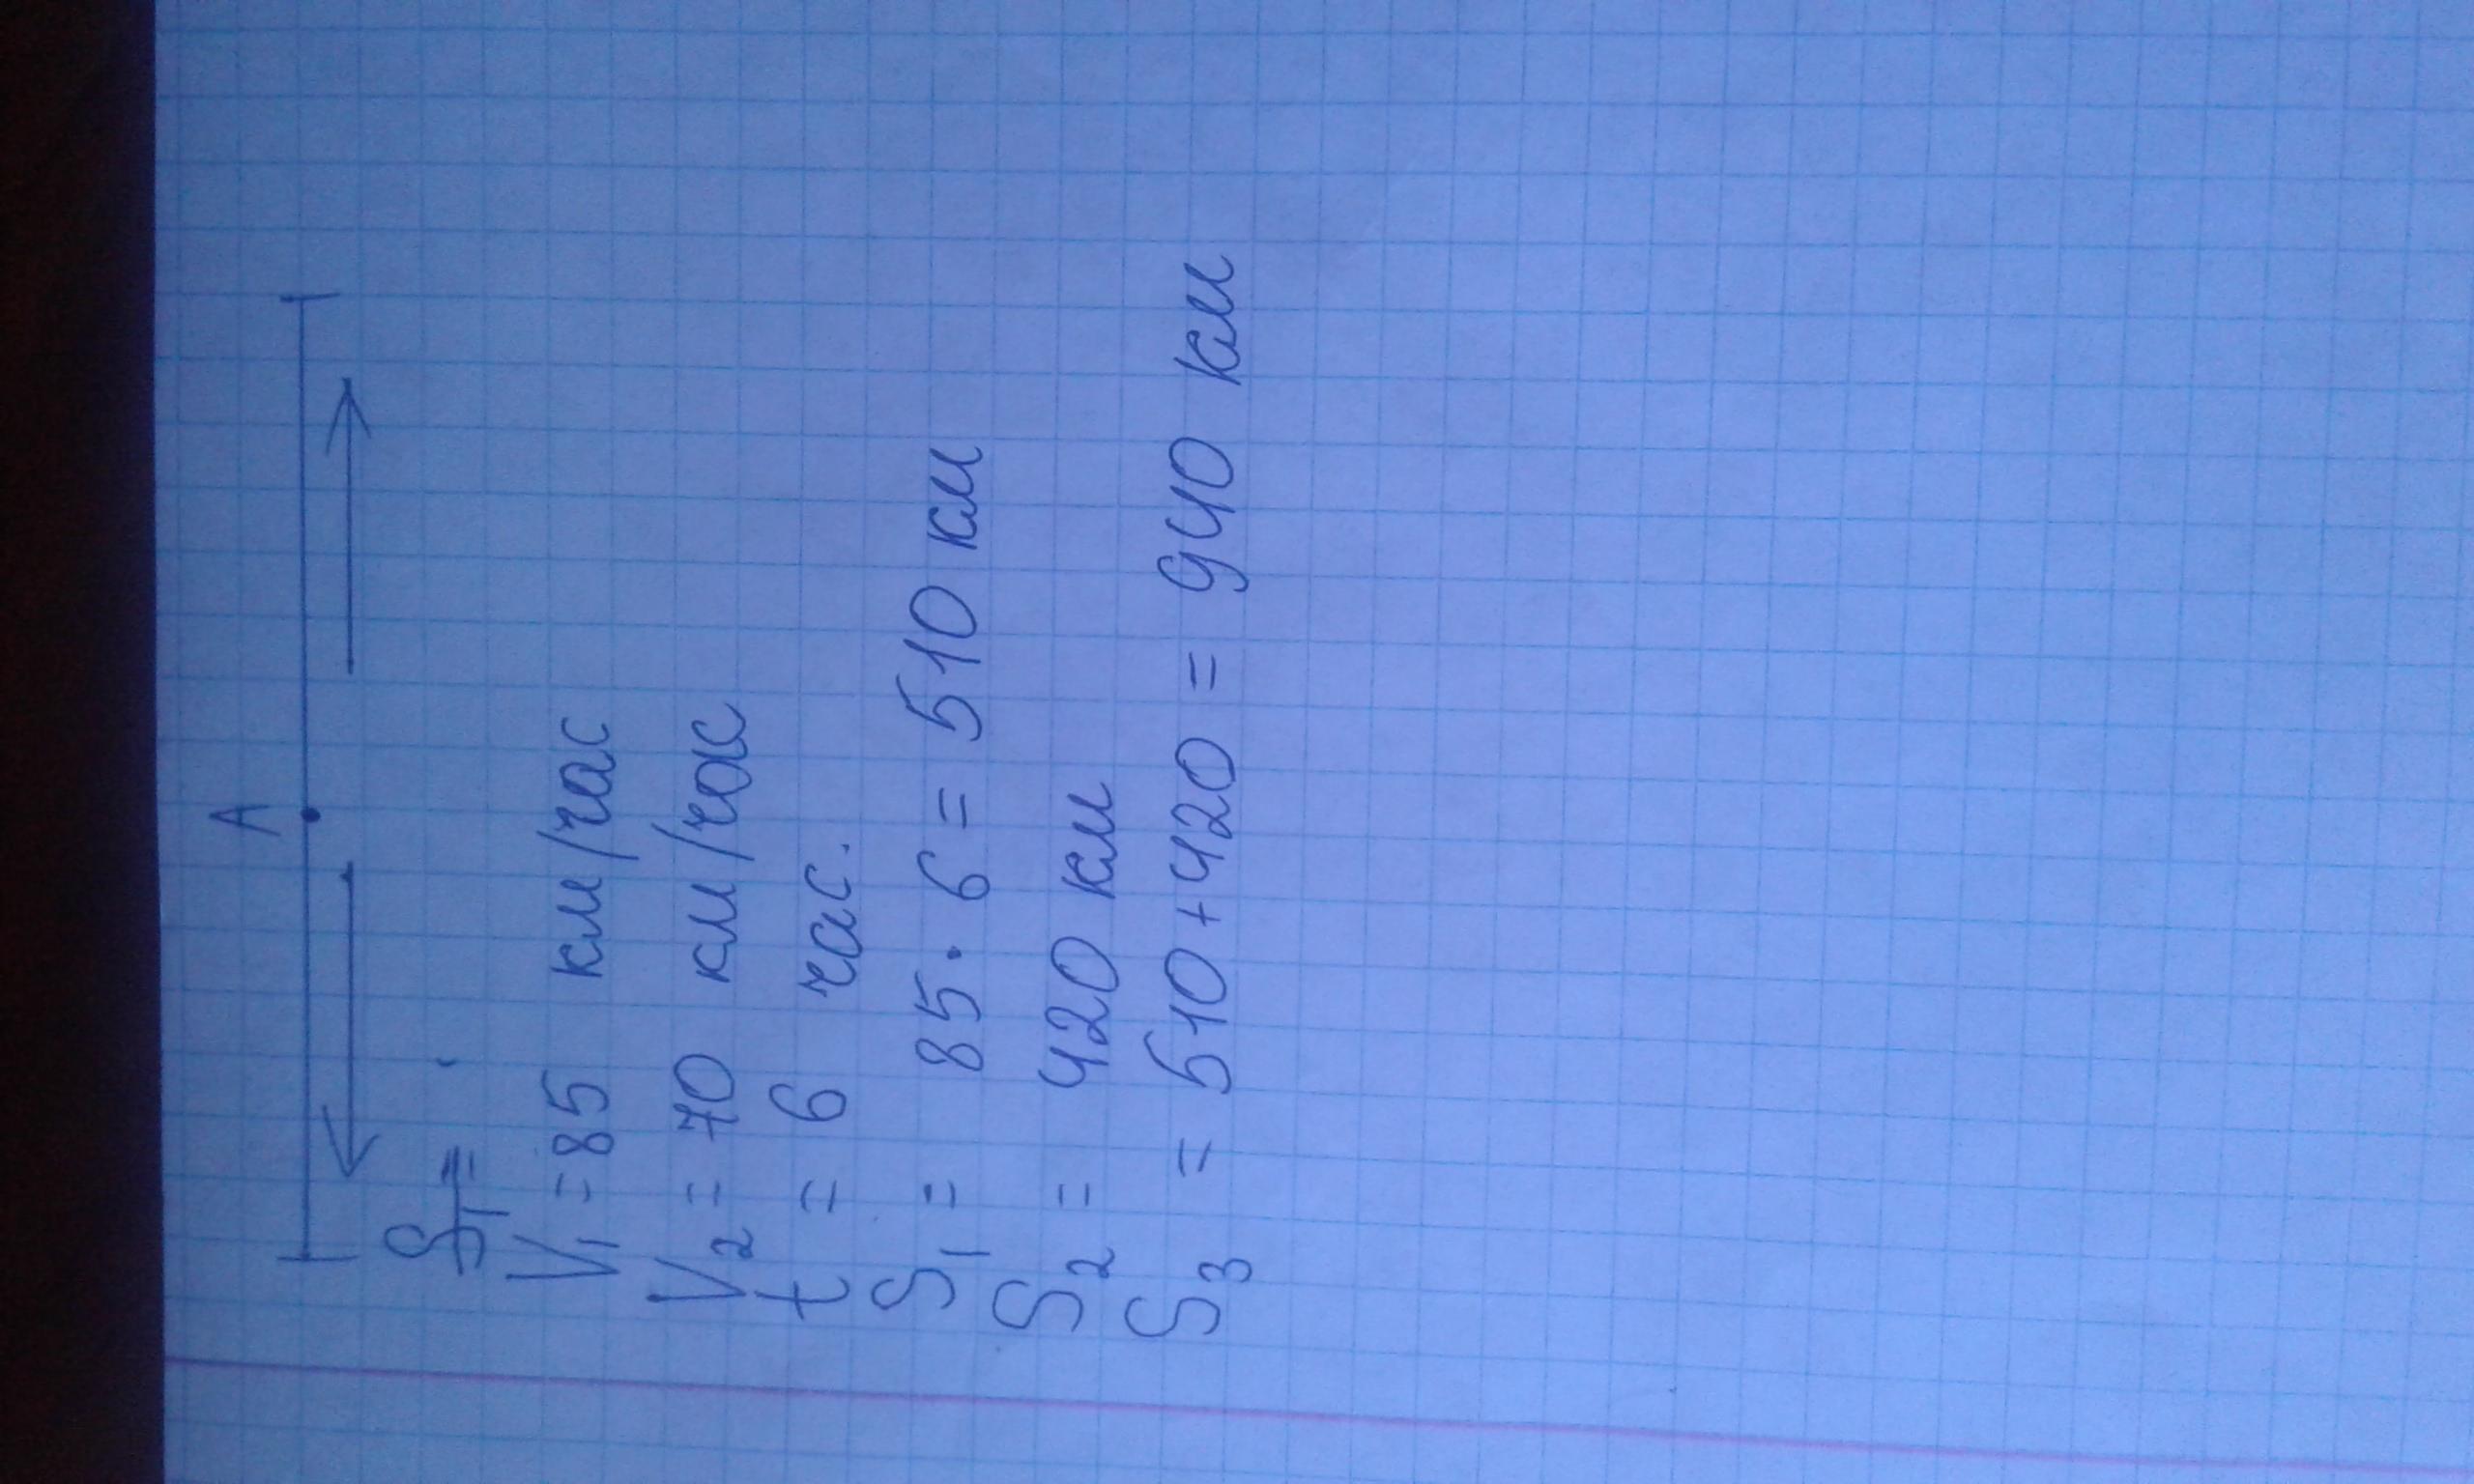 A
S₁ =
V₁ = 85 км/час
V₂ = 70 км/час
t = 6 час.
S₁ = 85 · 6 = 510 км
S₂ = 420 км
S₃ = 510 + 420 = 940 км